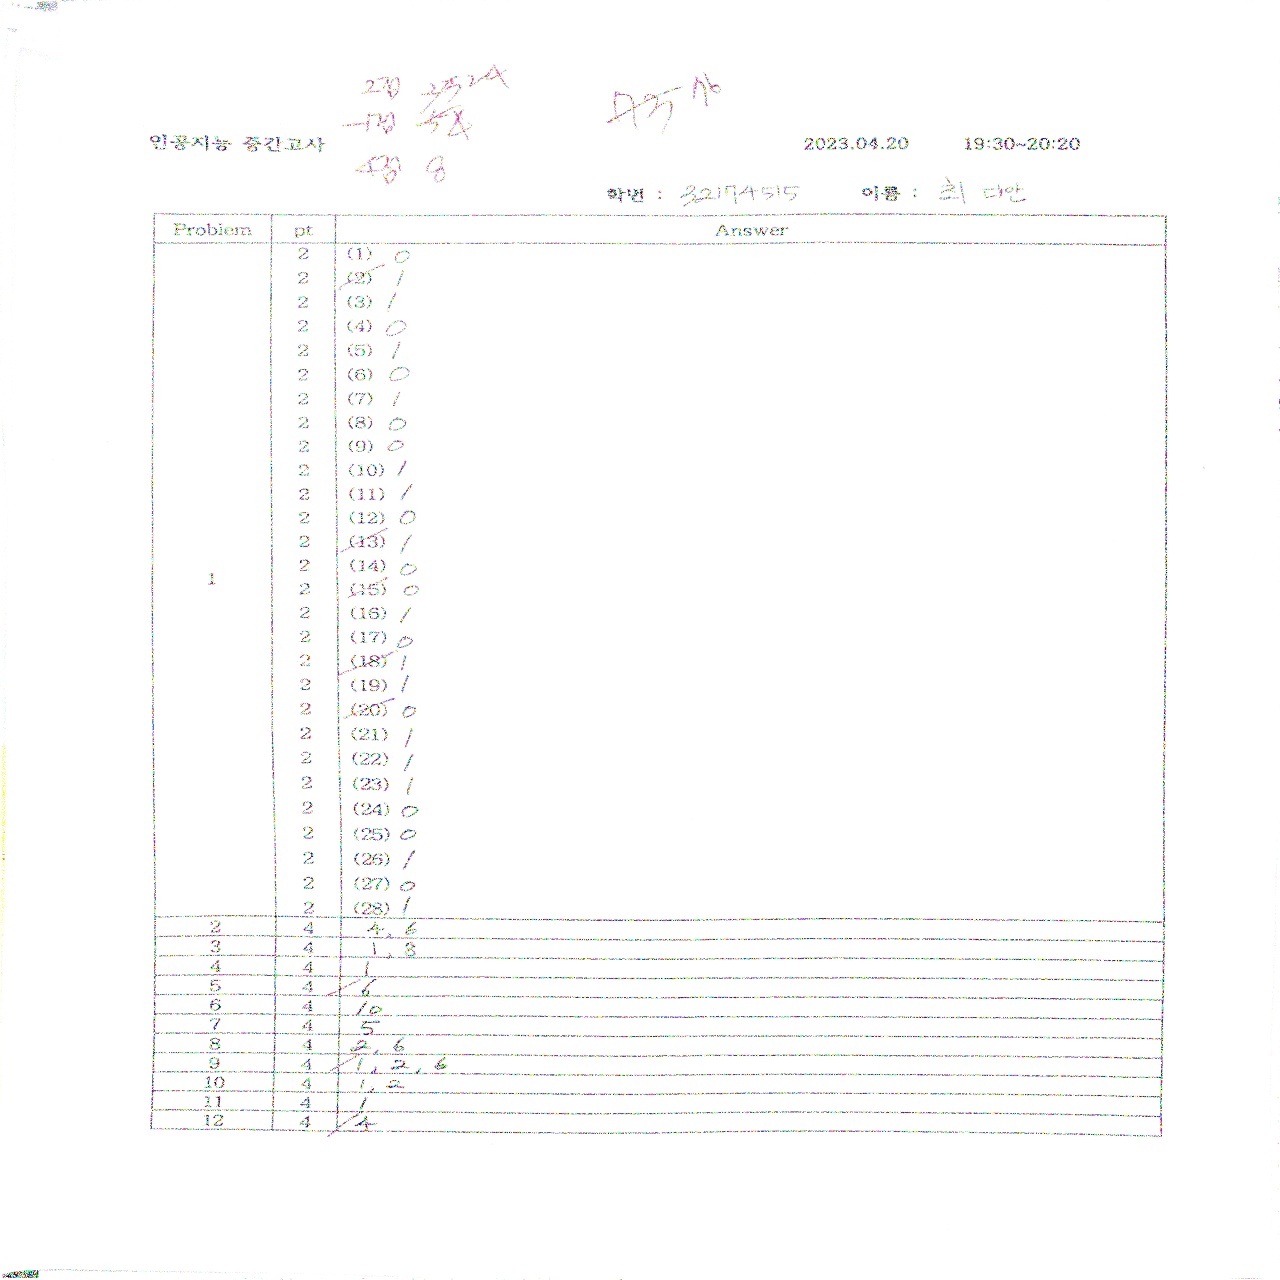 2점
-1점
4점 8
인공지능 중간고사 2023.04.20 19:30~20:20
학번 : 32174515 이름 : 최 디안
Problem pt Answer
1
2 (1) 0
2 (2) 1
2 (3) 1
2 (4) 0
2 (5) 1
2 (6) 0
2 (7) 1
2 (8) 0
2 (9) 0
2 (10) 1
2 (11) 1
2 (12) 0
2 (13) 1
2 (14) 0
2 (15) 0
2 (16) 1
2 (17) 0
2 (18) 1
2 (19) 1
2 (20) 0
2 (21) 1
2 (22) 1
2 (23) 1
2 (24) 0
2 (25) 0
2 (26) 1
2 (27) 0
2 (28) 1
2 4 4, 6
3 4 1, 3
4 4 1
5 4 6
6 4 10
7 4 5
8 4 2, 6
9 4 1, 2, 6
10 4 1, 2
11 4 1
12 4 4